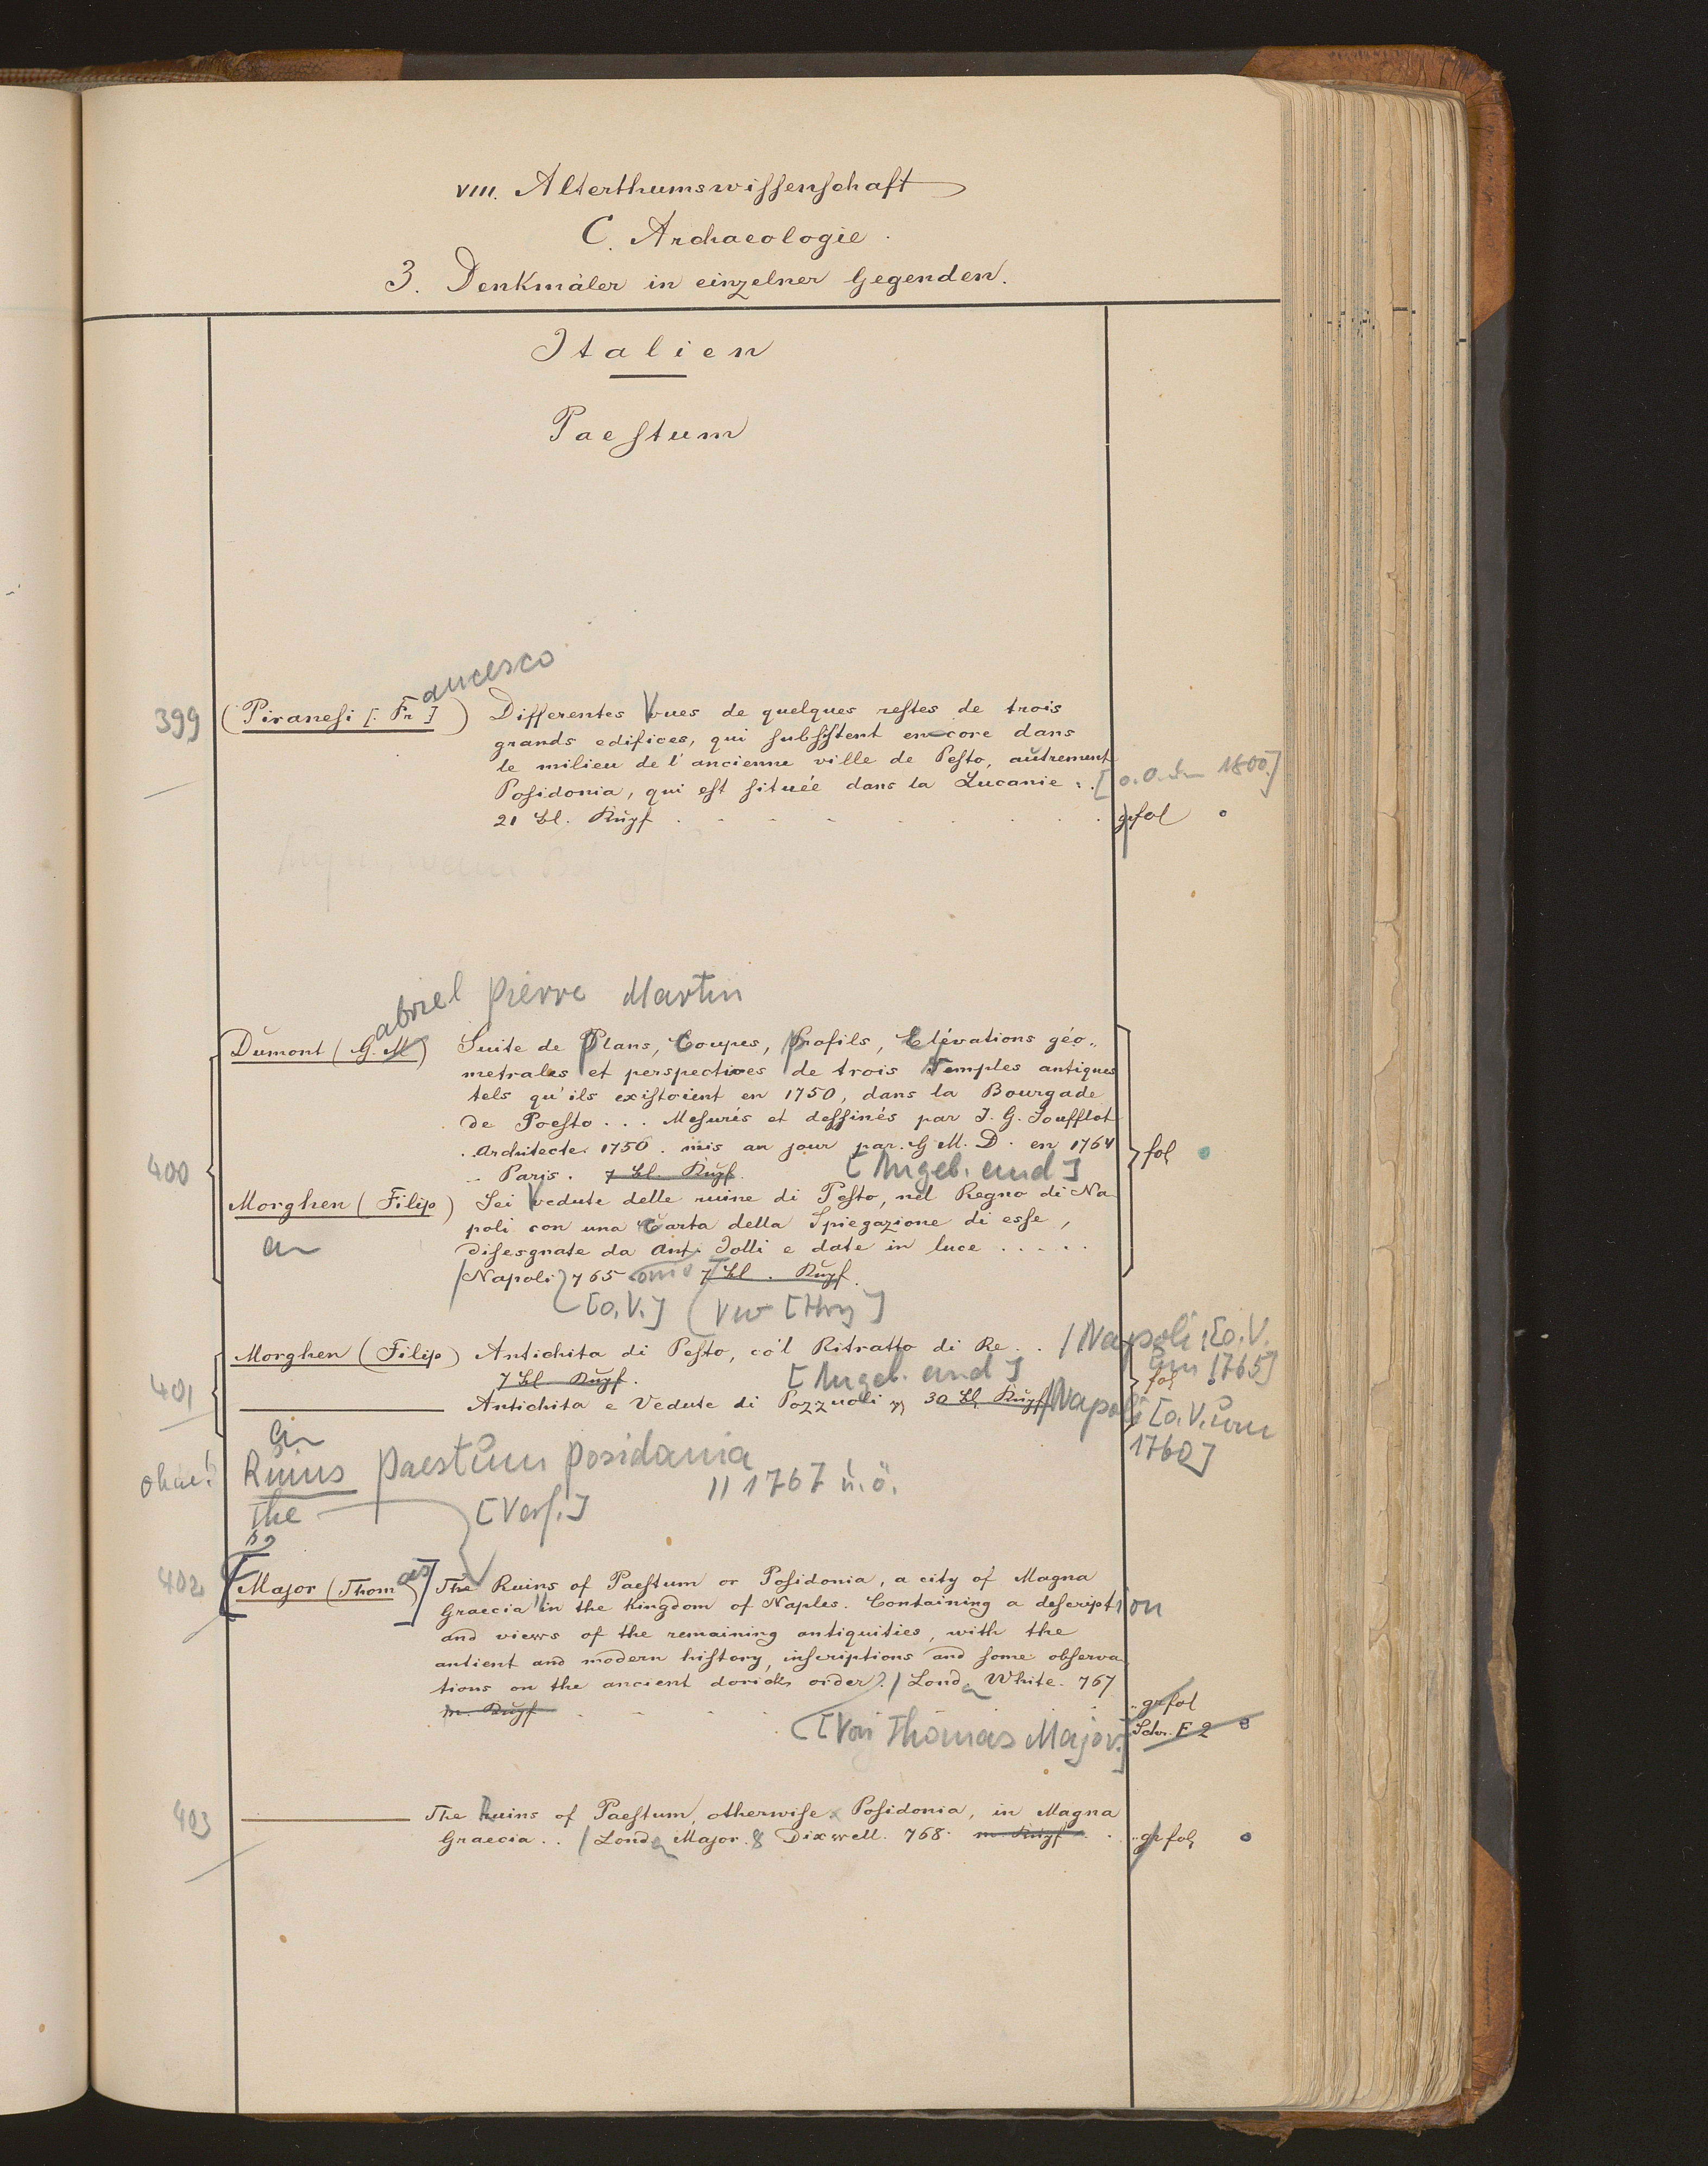 VIII. Alterthumswissenschaft
C. Archaeologie.
3. Denkmäler in einzelner Gegenden.
Italien
Paestum
ancesco
399 (Piranesi [. Fr ]) Differentes Vues de quelques restes de trois
grands edifices, qui subsistent encore dans
le milieu de l'ancienne ville de Pesto, autrement
Posidonia, qui est située dans la Lucanie. [o.O. 1800.]
21 Bl. Kupf. gr fol
abriel Pierre Martin
Dumont (G. M) Suite de Plans, Coupes, Profils, Elévations géo-
metrales et perspectives de trois Temples antiques
tels qu'ils existoient en 1750, dans la Bourgade
de Poesto . . . Mesurés et dessinés par J. G. Soufflot
Architecte 1750. mis au jour par G. M. D. en 1764
400 Paris. 7 Bl. Kupf. [Angeb. und] fol
Morghen (Filip) Sei Vedute delle ruine di Pesto, nel Regno di Na-
poli con una Carta della Spiegazione di esse,
disesgnate da Ant. Jolli e date in luce . . . . .
/ Napoli 765 7 Bl. Kupf.
[o.V.]
Morghen (Filip) Antichita di Pesto, co'l Ritratto di Re . . / Napoli [o.V.
um 1765]
401 7 Bl. Kupf. [Angeb. und] fol
Antichita e Vedute di Pozzuoli 30 Bl. Kupf. / Napoli [o.V. um
1760]
Ruins Paestum Posidania
The [Verf.] II 1767 u.ö.
402 [Major (Thomas)] The Ruins of Paestum or Posidonia, a city of Magna
Graecia in the Kingdom of Naples. Containing a description
and views of the remaining antiquities, with the
antient and modern history, inscriptions and some observa-
tions on the ancient dorick order. / Lond White. 767
m. Kupf gr fol
[Von Thomas Major.] Schr. F 2
403 The Ruins of Paestum, otherwise Posidonia, in Magna
Graecia . . / Lond Major & Dixwell. 768. m. Kupf gr fol